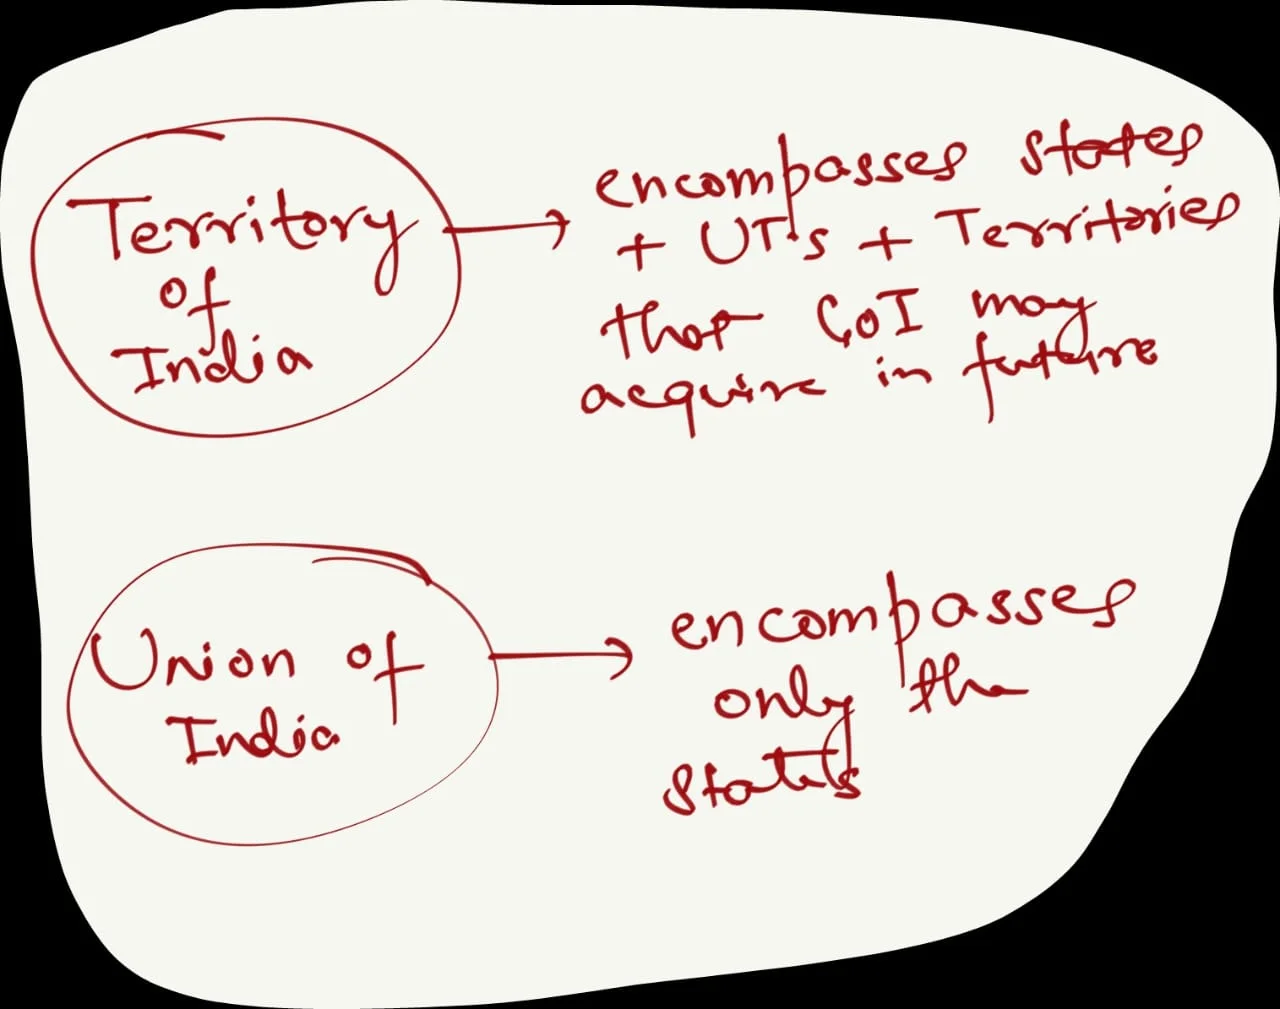 Territory
of
India
encompasses states
+ UT's + Territories
that GoI may
acquire in future
Union of
India
encompasses
only the
states